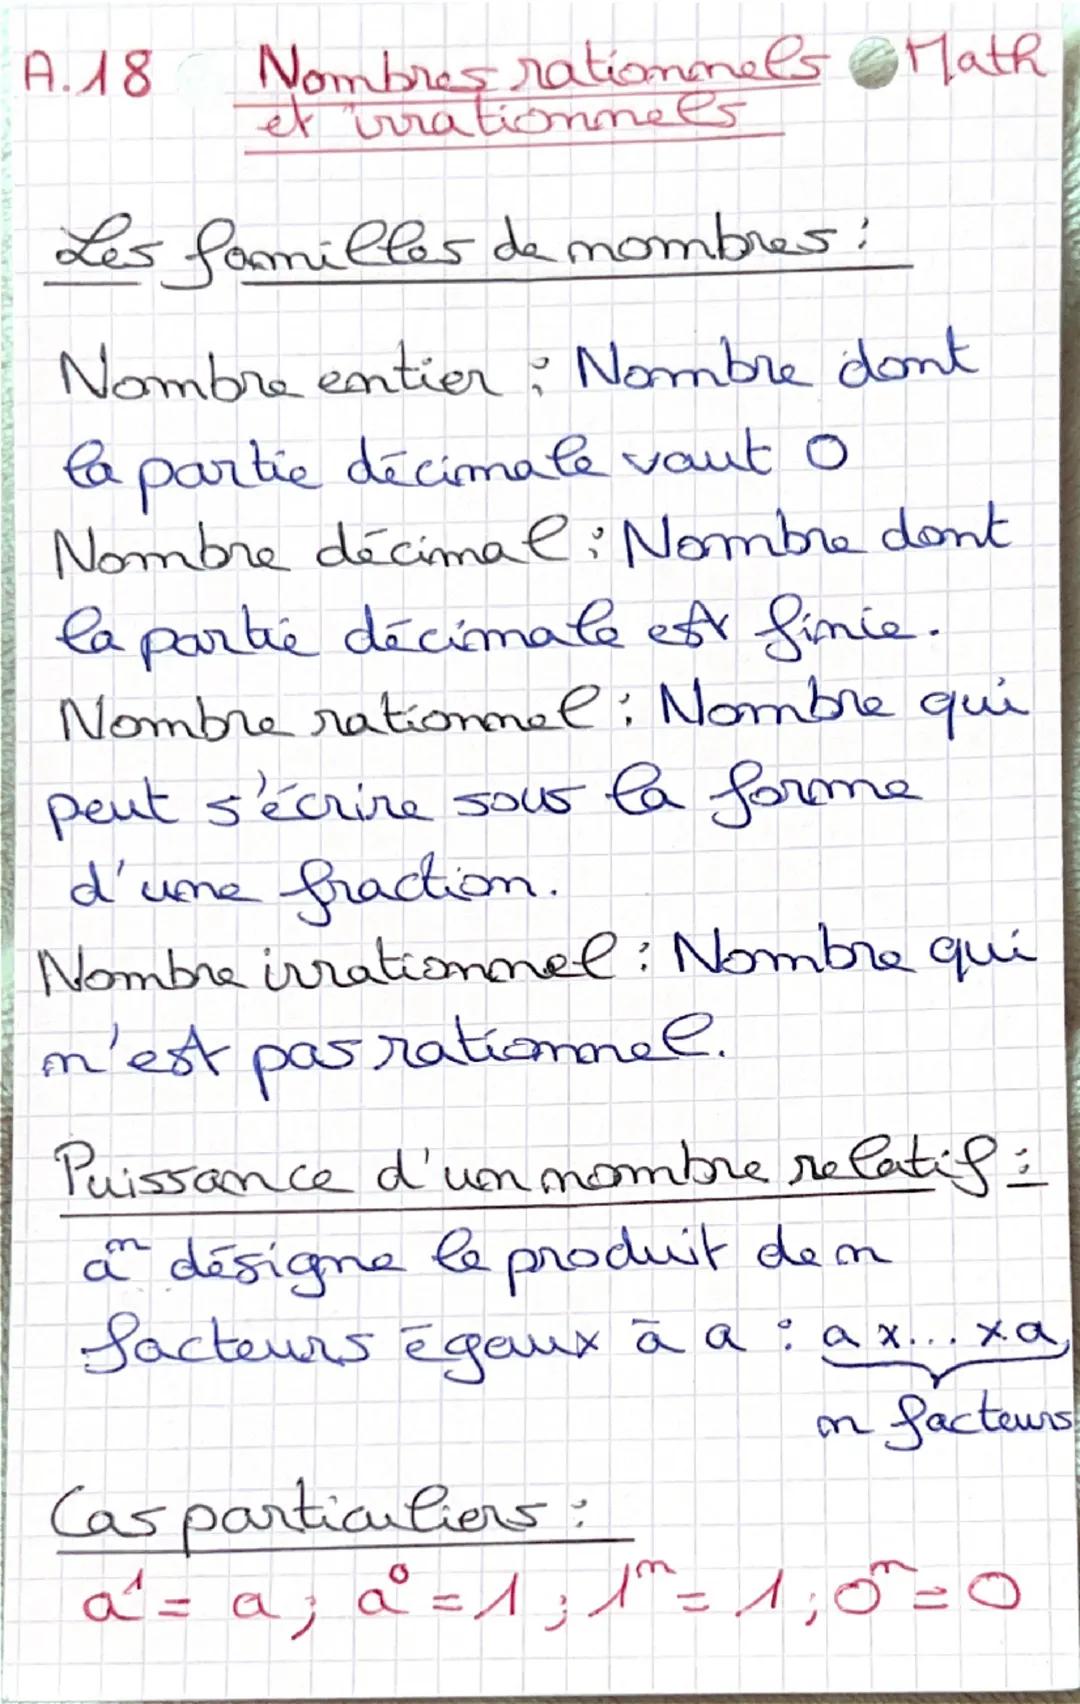 A.18 Nombres rationnels Math
et irrationnels
Les familles de nombres :
Nombre entier : Nombre dont
la partie décimale vaut 0
Nombre décimal : Nombre dont
la partie décimale est finie.
Nombre rationnel : Nombre qui
peut s'écrire sous la forme
d'une fraction.
Nombre irrationnel : Nombre qui
n'est pas rationnel.
Puissance d'un nombre relatif :
aⁿ désigne le produit de n
facteurs égaux à a : a x... x a
n facteurs
Cas particuliers :
a¹ = a ; a⁰ = 1 ; 1ⁿ = 1 ; 0ⁿ = 0